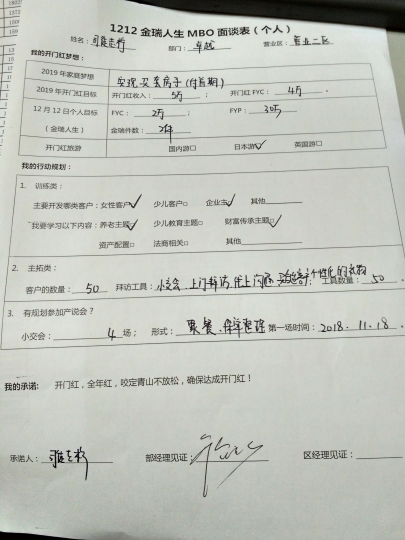 1212 金瑞人生 MBO 面谈表（个人）
姓名： 部门：卓越 营业区：营业二区
我的开门红梦想：
2019 年家庭梦想 实现买套房子（付首期）
2019 年开门红目标 开门红收入：5万 开门红 FYC：4万
12 月 12 日个人目标 FYC：2万 FYP：30万
（金瑞人生） 金瑞件数：2件
开门红旅游 国内游□ 日本游☑ 英国游□
我的行动规划：
1. 训练类：
主要开发哪类客户：女性客户☑ 少儿客户□ 企业主☑ 其他
我要学习以下内容：养老主题☑ 少儿教育主题□ 财富传承主题☑
资产配置□ 法商相关□ 其他
2. 主拓类：
客户的数量：50 拜访工具：小交会、上门拜访 工具数量：50
3. 有规划参加产说会？
小交会：4 场； 形式：聚餐、保单整理 第一场时间：2018.11.18
我的承诺： 开门红，全年红，咬定青山不放松，确保达成开门红！
承诺人： 部经理见证： 区经理见证：